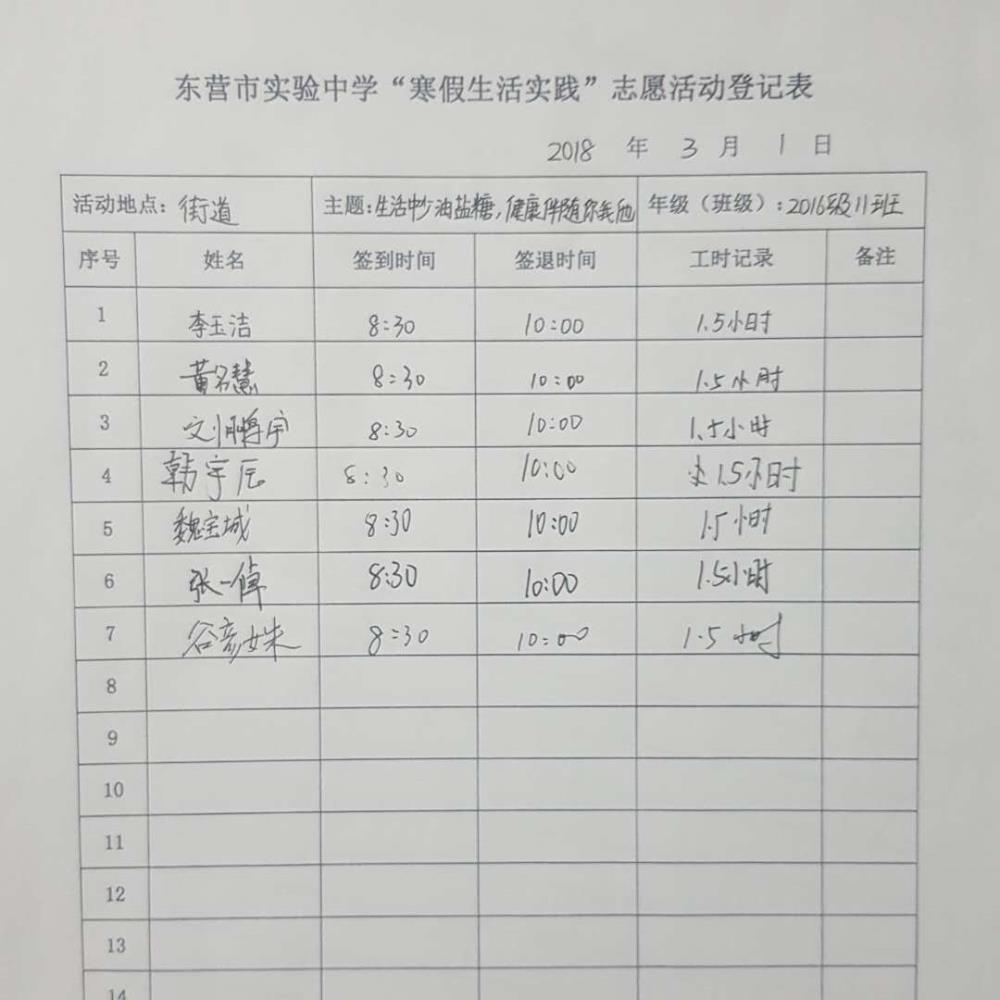 东营市实验中学“寒假生活实践”志愿活动登记表
2018 年 3 月 1 日
活动地点：街道 主题：生活中少油盐糖，健康伴随你我他 年级（班级）：2016级11班
序号 姓名 签到时间 签退时间 工时记录 备注
1 李玉洁 8:30 10:00 1.5小时
2 黄名慧 8:30 10:00 1.5小时
3 8:30 10:00 1.5小时
4 韩宇辰 8:30 10:00 1.5小时
5 魏宝城 8:30 10:00 1.5小时
6 张一倬 8:30 10:00 1.5小时
7 谷彦姝 8:30 10:00 1.5小时
8
9
10
11
12
13
14